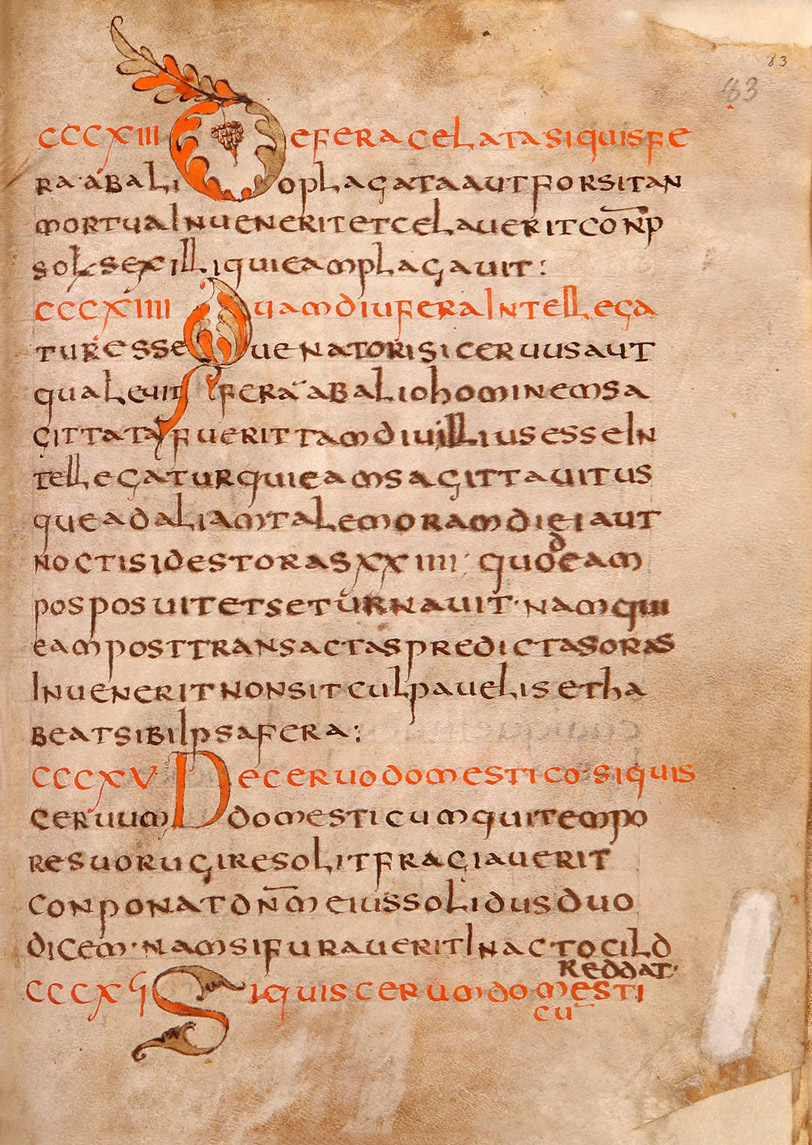 83
83
CCCXIII DE FERA CELATA SI QUIS FE
RA AB ALIO PLAGATA AUT FORSITAN
MORTUA INUENERIT ET CELAUERIT CON̅P
SOL SEX ILLI QUI EAM PLAGAUIT:
CCCXIIII QUAMDIU FERA INTELLEGA
TUR ESSE UENATORI SI CERUUS AUT
QUALEUIT FERA AB ALIO HOMINEM SA
GITTATA FUERIT TAMDIU ILLIUS ESSE IN
TELLEGATUR QUI EAM SAGITTAUIT US
QUE AD ALIAM TALEM ORAM DIEI AUT
NOCTIS ID EST ORAS XXIIII QUOD EAM
POSPOSUIT ET SE TURNAUIT· NAM QUI
EAM POST TRANSACTAS PREDICTAS ORAS
INUENERIT NON SIT CULPAUELIS ET HA
BEAT SIBI IPSA FERA:
CCCXV DE CERUO DOMESTICO· SI QUIS
CERUUM DOMESTICUM QUI TEMPO
RE SUO RUGIRE SOLIT FRAGIAUERIT
CONPONAT DN̅M EIUS SOLIDUS DUO
DICEM· NAM SI FURAUERIT IN ACTOGILD
REDDAT·
CCCXVI SI QUIS CERUUM DOMESTI
CU̅